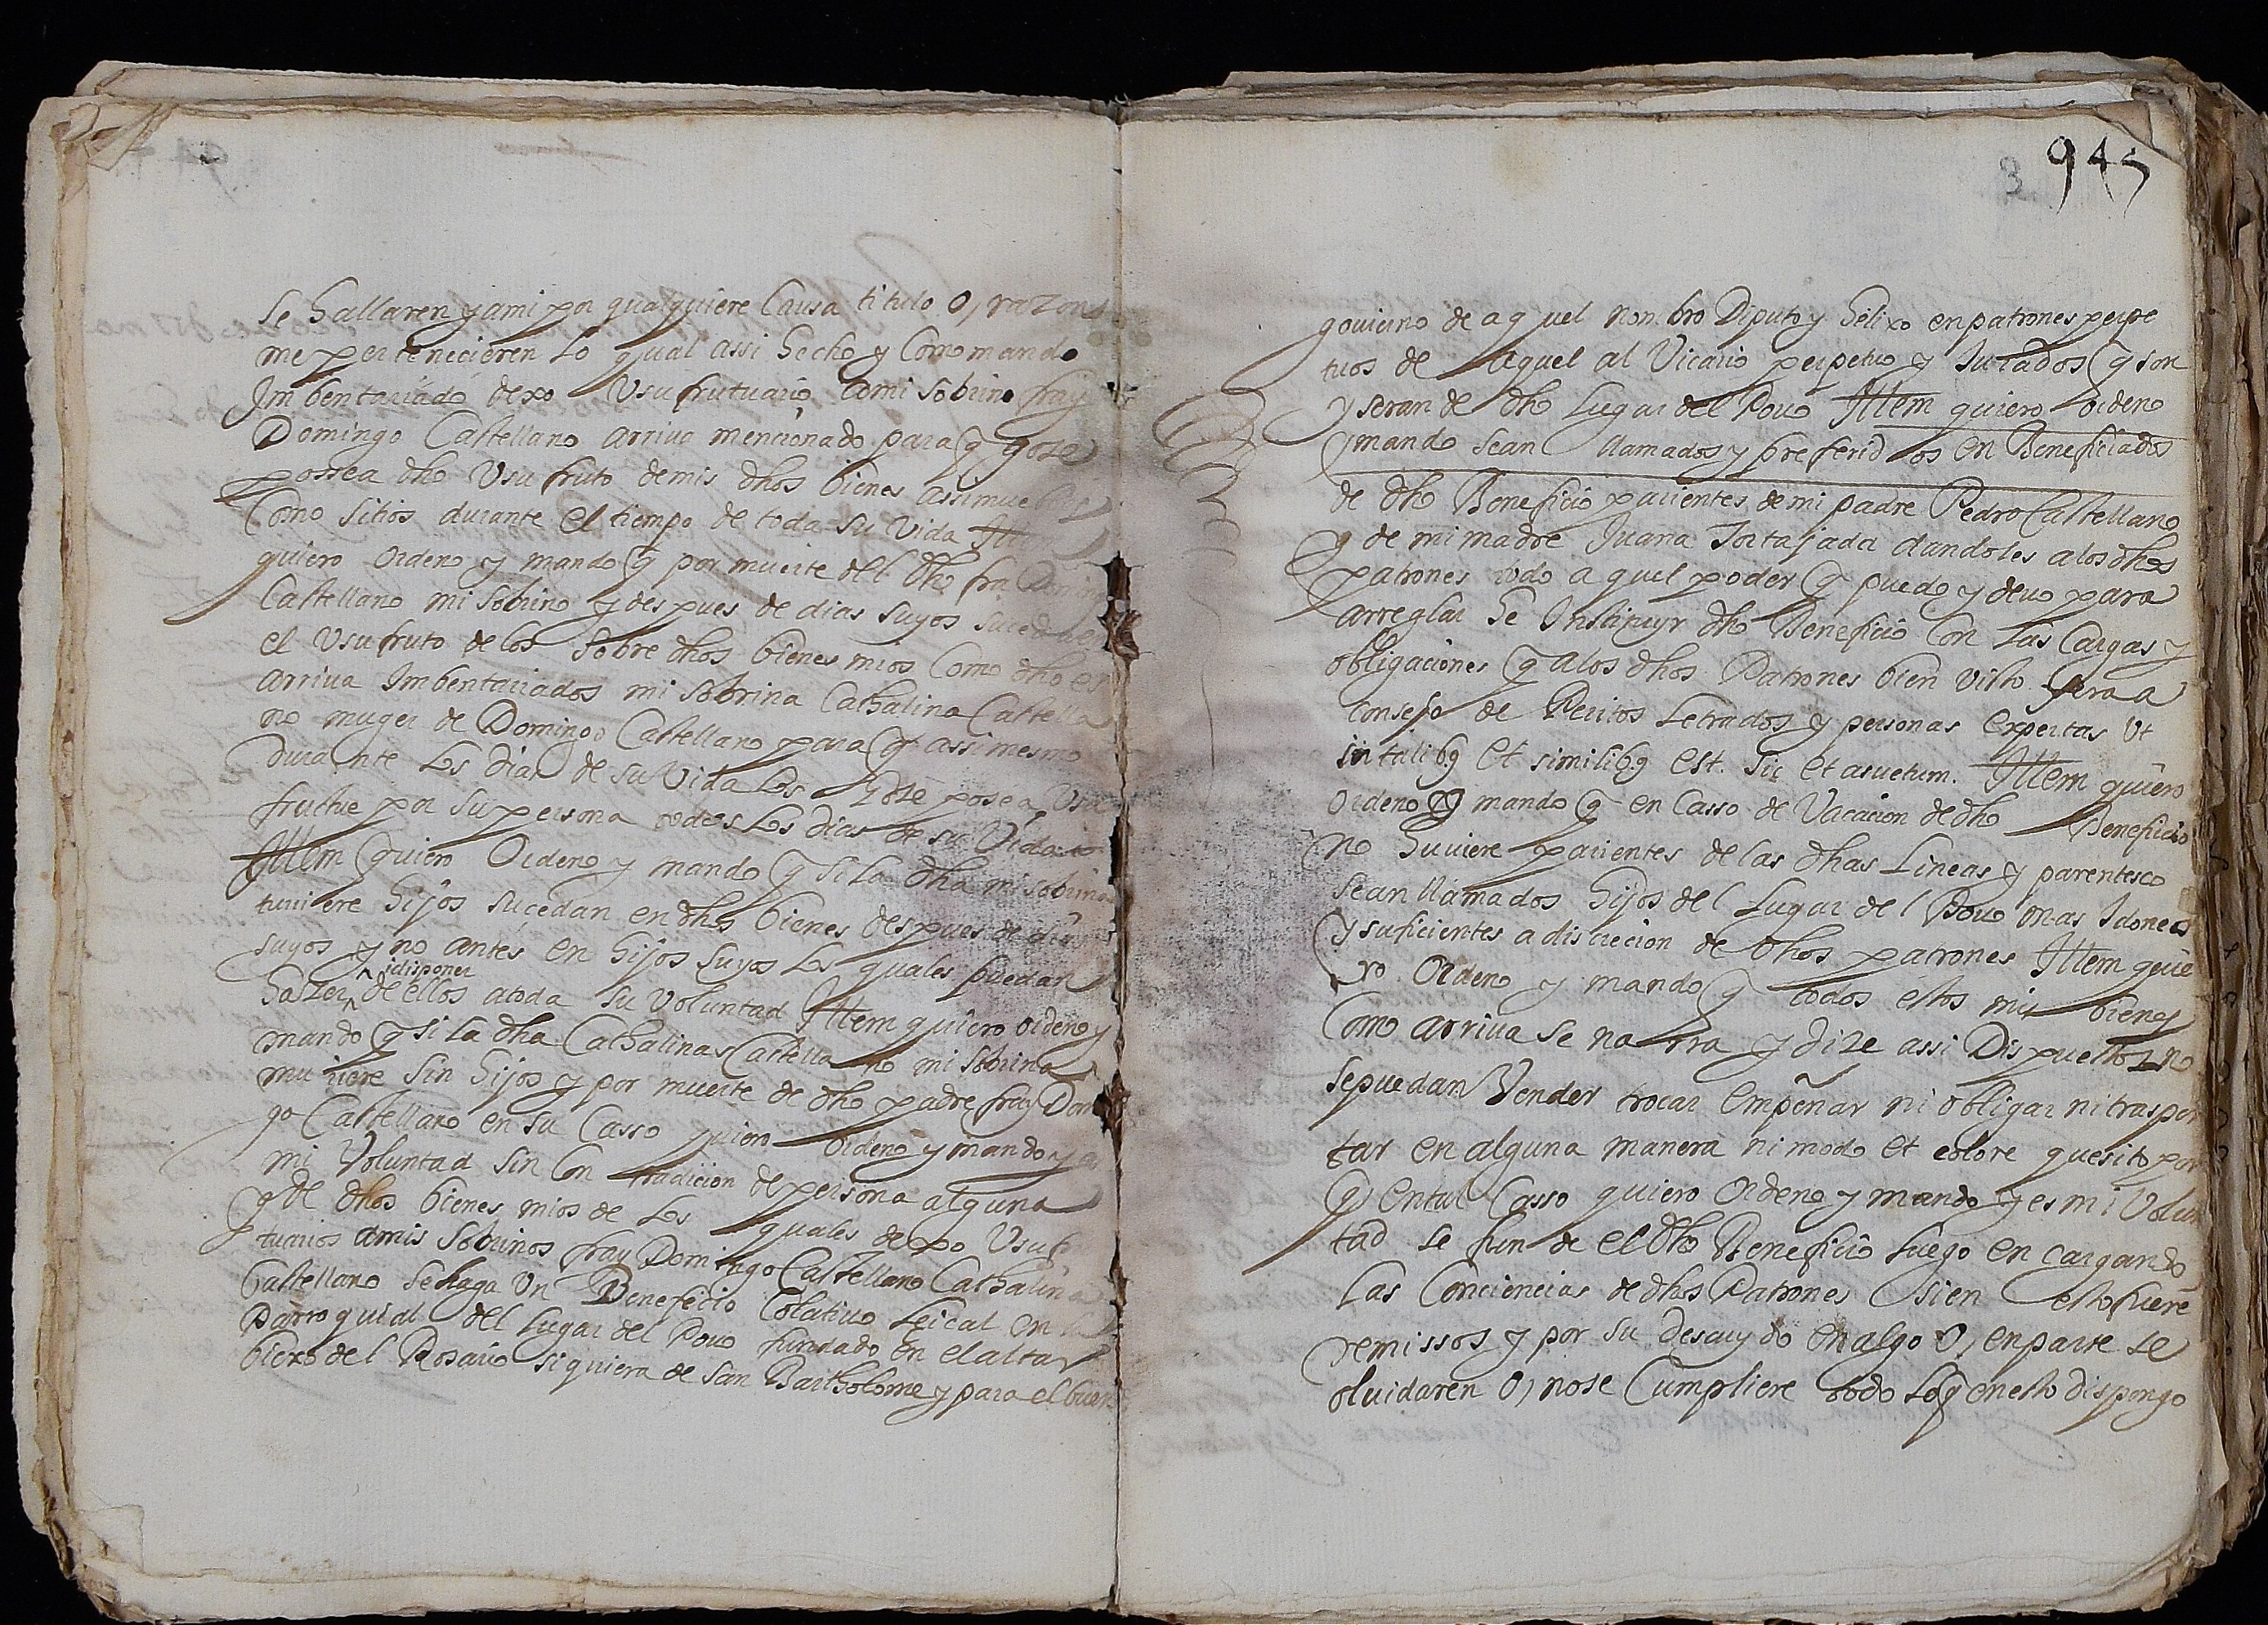 se hallaren y ami por qualquiere Causa titulo o, razon
me pertenecieren lo qual assi hecho y Como mando
Imbentariado dexo Usufrutuario a mi sobrino fray
Domingo Castellano arriva mencionado para q goze
possea dho Usufruto de mis dhos bienes assi muebles
Como sitios durante el tiempo de toda su vida Ittem
quiero ordeno y mando q por muerte dell dho fra Domin
Castellano mi sobrino y despues de dias suyos suceda en
el Usufruto de los sobre dhos bienes mios Como dho es
arriva Imbentariados mi sobrina Cathalina Castella
no muger de Domingo Castellano para q assi mesmo
durante los dias de su vida los goze posea, Usu
frutue por su persona todos los dias de su Vida
Ittem quiero Ordeno y mando q si la dha mi sobrina
tuviere hijos sucedan en dhos bienes despues de dias
suyos y no antes en hijos suyos los quales puedan
idisponer
hazer de ellos atoda su voluntad Ittem quiero ordeno y
mando q si la dha Cathalina Castellano mi sobrina
muriere sin hijos y por muerte de dho padre fray Domin
go Castellano en su Casso quiero ordeno y mando y es
mi Voluntad sin Contradicion de persona alguna
q de dhos bienes mios de los quales dexo Usuf
tuarios amis sobrinos fray Domingo Castellano Cathalina
Castellano se haga Un Beneficio Colativo Leical en la
Parroquial dell Lugar del Povo fundado en el altar
biexo del Rosario siquiera de San Bartholome y para el buen
3 945
govierno de aquel nombro Diputo y helixo en patrones perpe
tuos de aquel al Vicario perpetuo y Jurados q son
y seran de dho Lugar del Povo Ittem quiero ordeno
y mando sean llamados y preferidos en Beneficiados
de dho Beneficio parientes de mi padre Pedro Castellano
y de mi madre Juana Tortajada dandoles a los dhos
patrones todo aquel poder q puedo y devo para
arreglar he Instituyr dho Beneficio Con las Cargas y
obligaciones q a los dhos Patrones bien visto sera a
Consejo de Peritos Letrados y personas expertas Ut
in talibq et similibq est. sic et asuetum. Ittem quiero
Ordeno y mando q en Casso de Vacacion de dho Beneficio
no huviere parientes de las dhas Lineas y parentesco
sean llamados hijos del Lugar del Povo mas Idoneos
y suficientes a discrecion de dhos patrones Ittem quie
ro Ordeno y mando q todos estos mis bienes
Como arriva se narra y dize assi Dispuestos no
se puedan Vender trocar empeñar ni obligar ni traspor
tar en alguna manera ni modo et colore quesito por
q en tal Casso quiero Ordeno y mando y es mi Volun
tad se funde el dho Beneficio luego en cargando
las Conciencias de dhos Patrones si en esto fuere
remissos y por su descuydo en algo o, en parte se
olvidaren o, no se Cumpliere todo lo q en esto dispongo